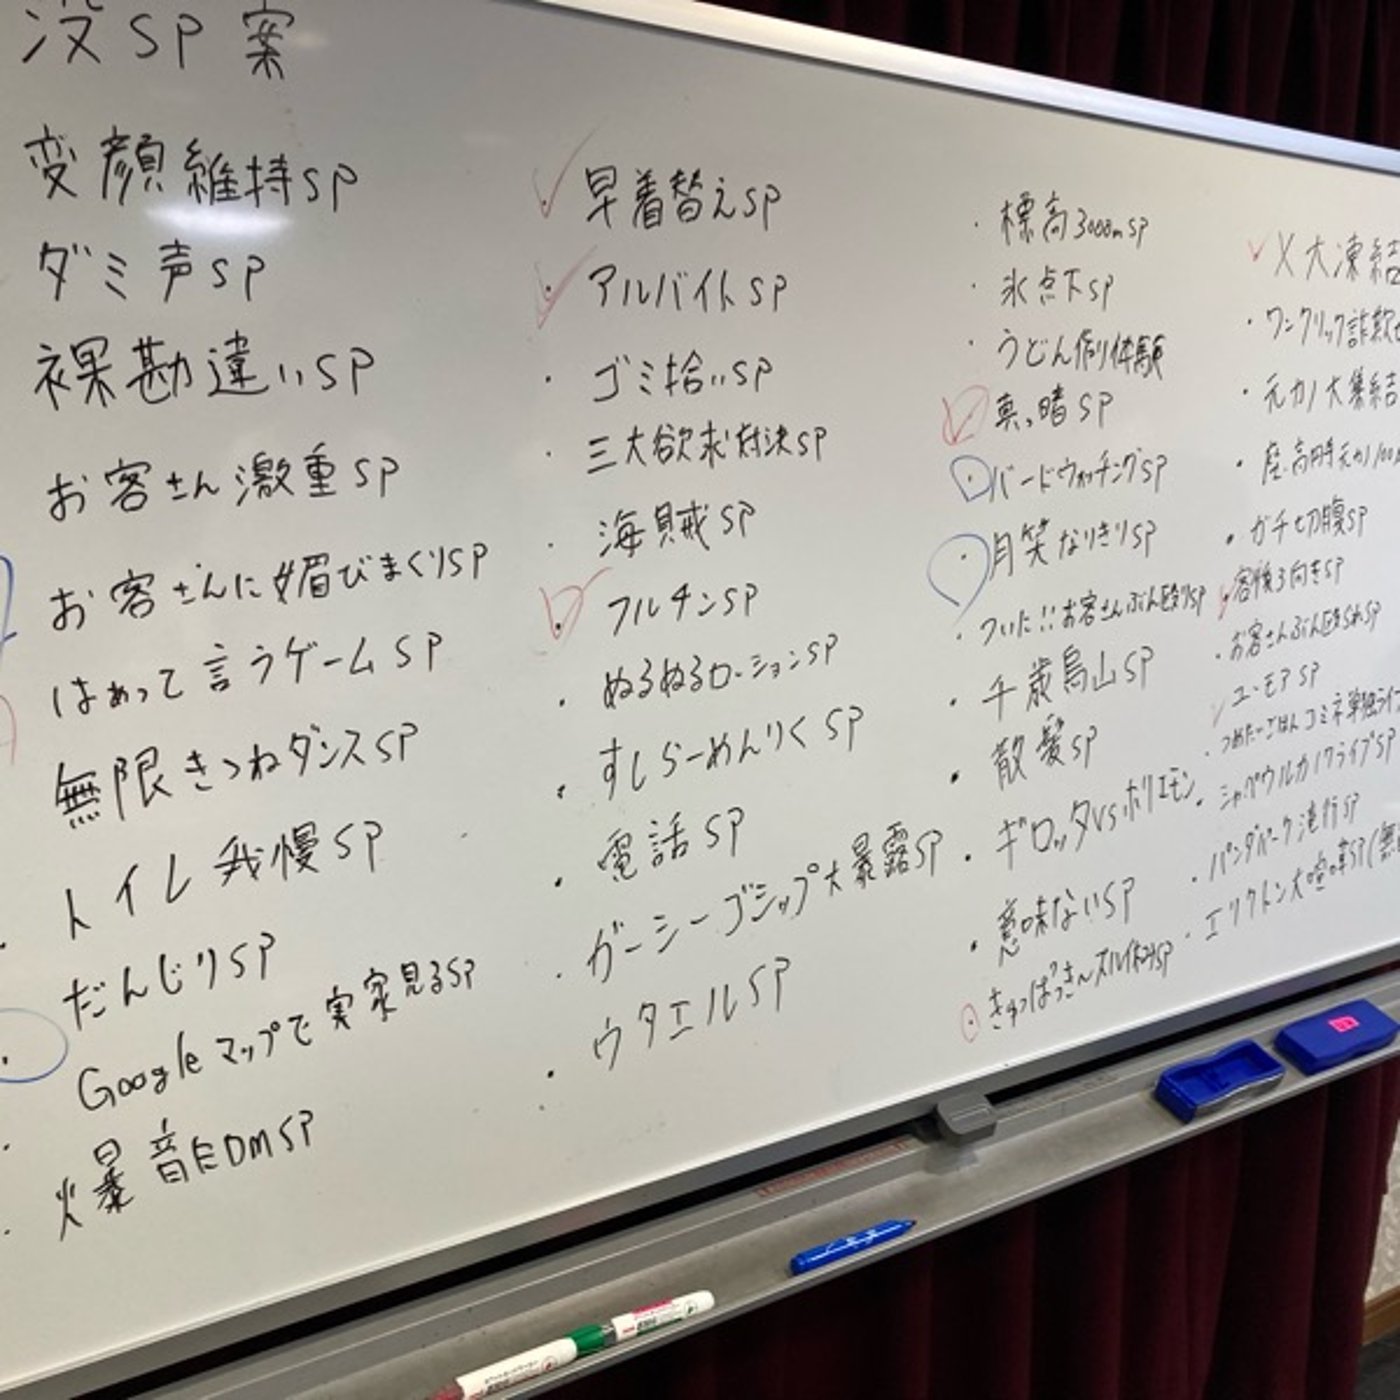 没SP案
変顔維持SP
ダミ声SP
裸勘違いSP
お客さん激重SP
お客さんに媚びまくりSP
はぁって言うゲームSP
無限きつねダンスSP
トイレ我慢SP
だんじりSP
Googleマップで実家見るSP
爆音EDMSP
早着替えSP
アルバイトSP
ゴミ拾いSP
三大欲求対決SP
海賊SP
フルチンSP
ぬるぬるローションSP
すしらーめんりくSP
電話SP
ガーシーゴシップ大暴露SP
ウタエルSP
標高3000mSP
氷点下SP
うどん作り体験
真っ暗SP
バードウォッチングSP
月笑なりきりSP
ついに!!お客さんぶん殴りSP
千歳烏山SP
散髪SP
ギロッタvsホリエモン
意味ないSP
きゅうぱっきんズル休みSP
X大凍結
ワンクリック詐欺
元カノ大集結
座高円寺元カノ100
ガチ切腹SP
客後ろ向きSP
お客さんぶん殴られSP
ユーモアSP
つめたいごはんコミネ単独ライブ
シャグウルカノクライブSP
パンダパーク進行SP
エリクトン大喧嘩SP